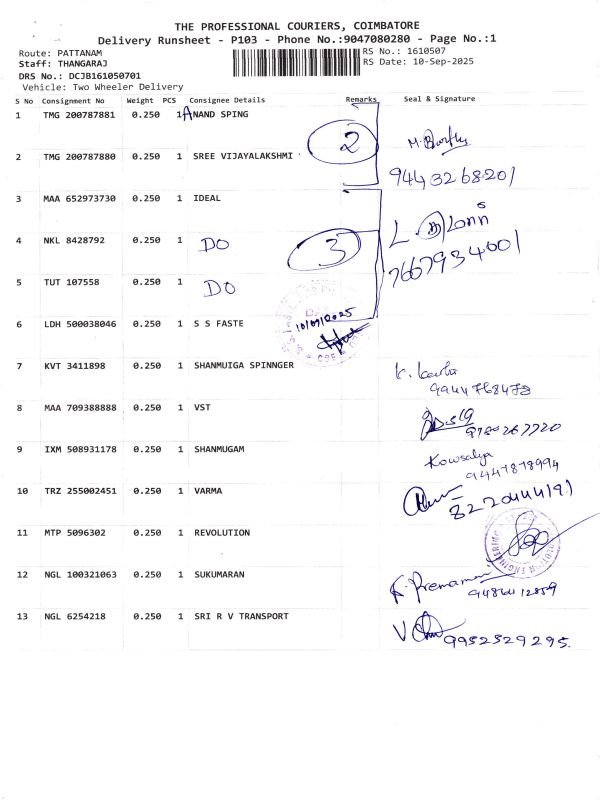 THE PROFESSIONAL COURIERS, COIMBATORE
Delivery Runsheet - P103 - Phone No.:9047080280 - Page No.:1
Route: PATTANAM
RS No.: 1610507
Staff: THANGARAJ
RS Date: 10-Sep-2025
DRS No.: DCJB161050701
Vehicle: Two Wheeler Delivery
S No Consignment No Weight PCS Consignee Details Remarks Seal & Signature
1 TMG 200787881 0.250 1 ANAND SPING
2
2 TMG 200787880 0.250 1 SREE VIJAYALAKSHMI
9443268201
3 MAA 652973730 0.250 1 IDEAL
4 NKL 8428792 0.250 1 DO 3
7667934001
5 TUT 107558 0.250 1 DO
6 LDH 500038046 0.250 1 S S FASTE
10/09/2025
7 KVT 3411898 0.250 1 SHANMUIGA SPINNGER
9944768478
8 MAA 709388888 0.250 1 VST
9789267720
9 IXM 508931178 0.250 1 SHANMUGAM Kowsalya
9447878994
10 TRZ 255002451 0.250 1 VARMA
8220444191
11 MTP 5096302 0.250 1 REVOLUTION
12 NGL 100321063 0.250 1 SUKUMARAN
9486412859
13 NGL 6254218 0.250 1 SRI R V TRANSPORT
9952529295.